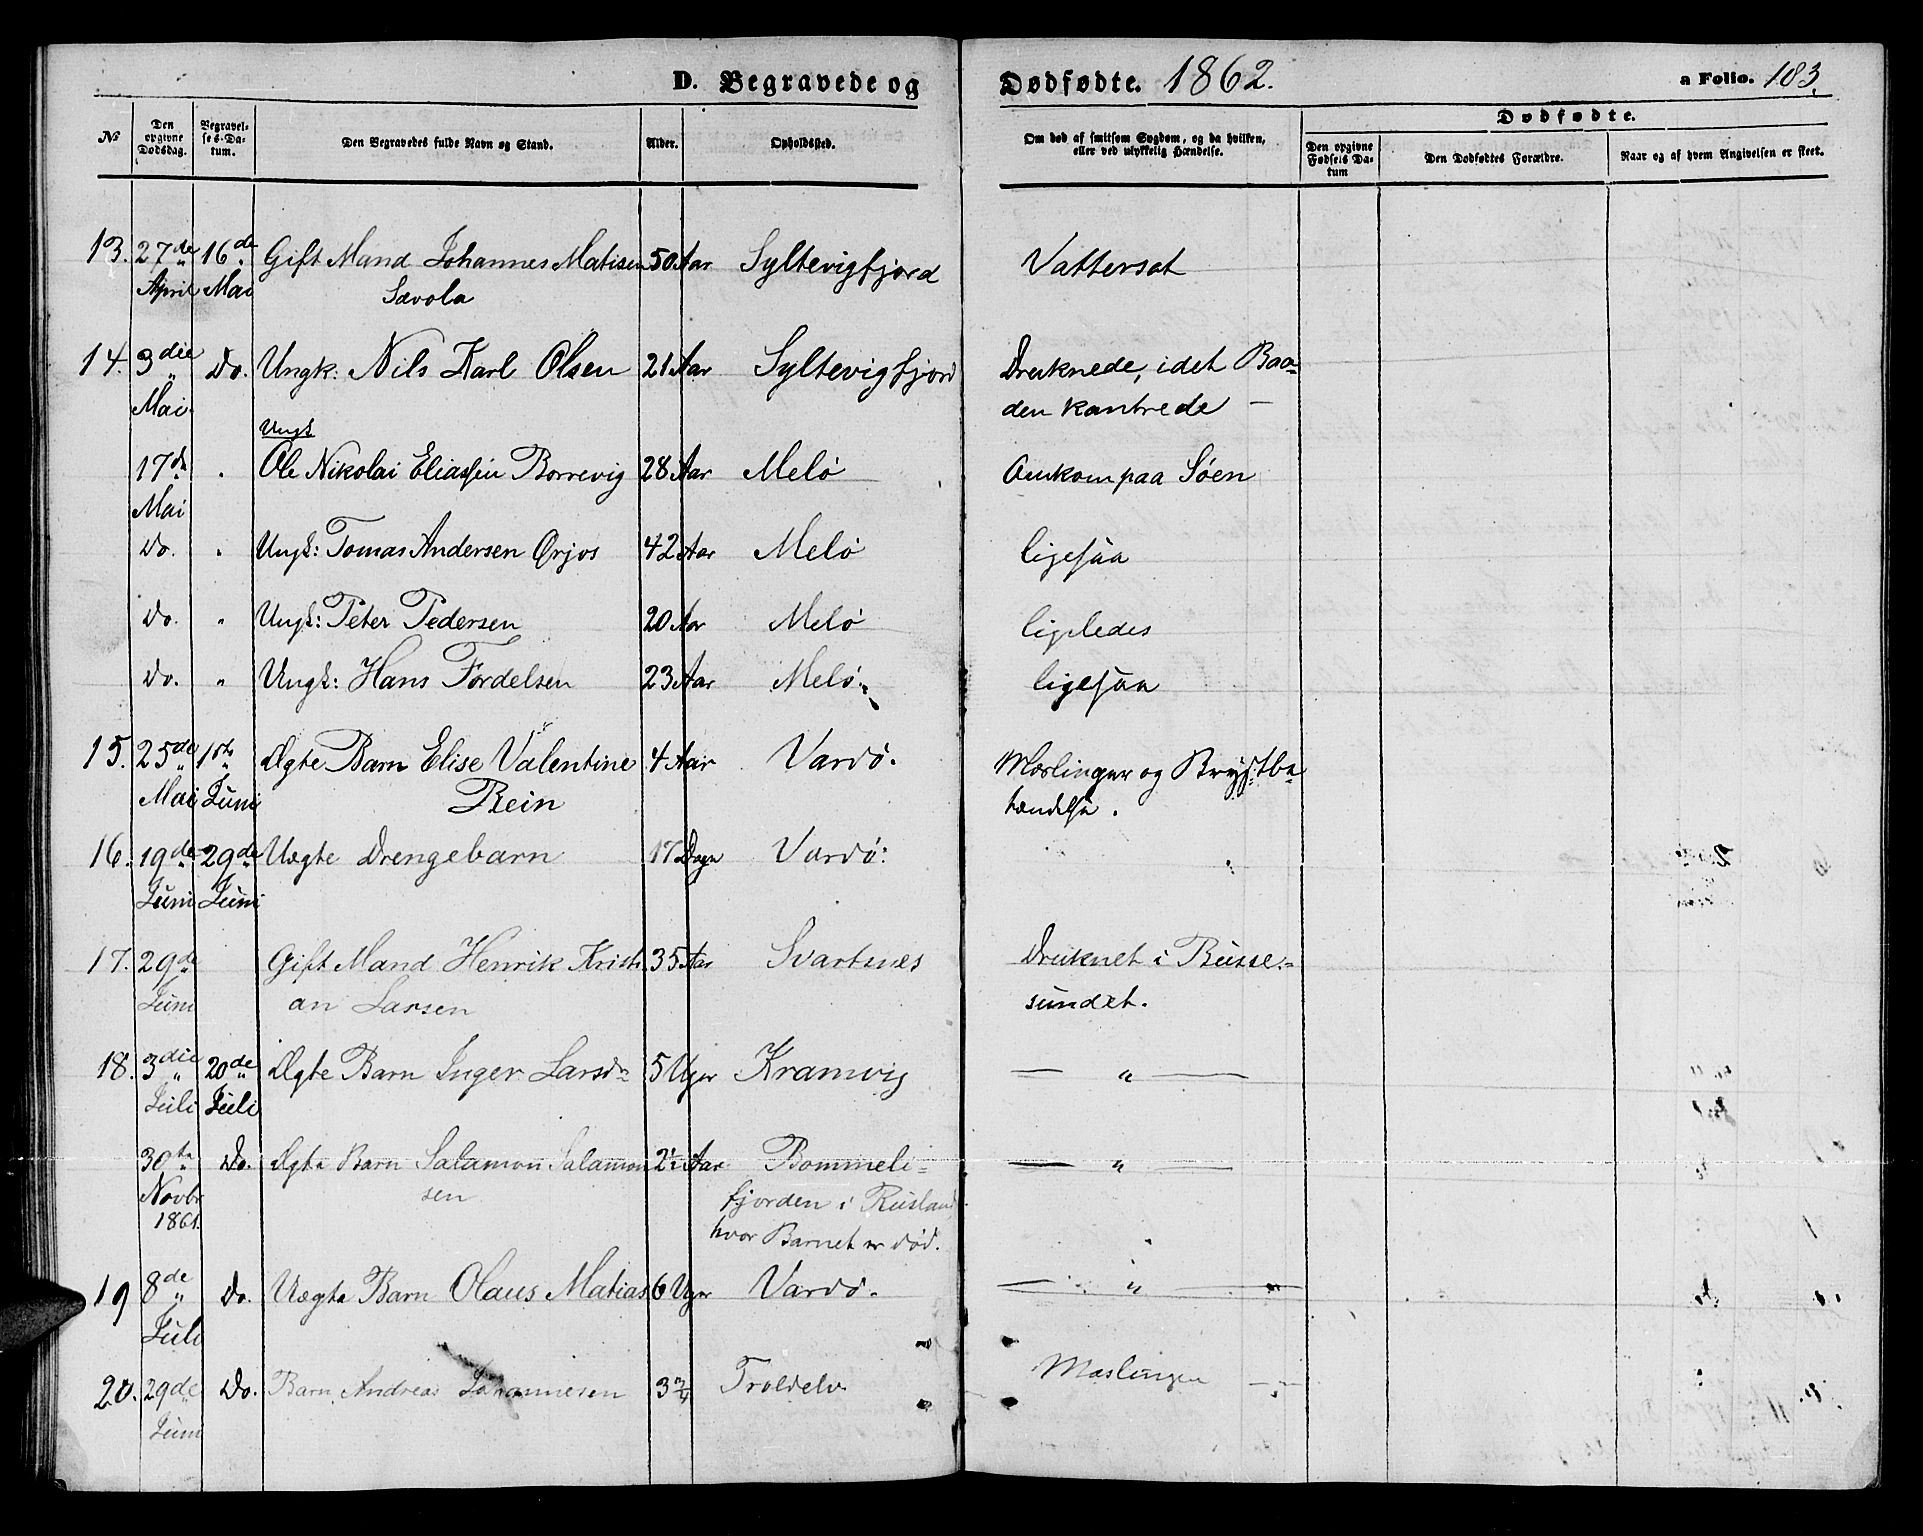 D. Begravede og Dødfødte. 1862. a Folio. 183.
Dødfødte.
No
Den opgivne Dødsdag.
Begravelses-Datum.
Den Begravedes fulde Navn og Stand.
Alder.
Opholdssted.
Om død af smitsom Sygdom, og da hvilken, eller ved ulykkelig Hændelse.
Den opgivne Fødsels Datum
Den Dødfødtes Forældre.
Naar og af hvem Angivelsen er skeet.
13. 27de 16de Gift Mand Johannes Matisen 50 Aar Syltevigfjord Vattersot
April Mai Savola
14. 3die Do. Ungk: Nils Karl Olsen 21 Aar Syltevigfjord Druknede, idet Baa-
Mai den kantrede
Ungk
17de " Ole Nikolai Eliassen Borrevig 28 Aar Melö Omkom paa Söen
Mai
Do. " Ungk: Tomas Andersen Ørjos 42 Aar Melö ligesaa
Do. " Ungk: Peter Pedersen 20 Aar Melö ligeledes
Do. " Ungk: Hans Fordelsen 23 Aar Melö ligesaa
15. 25de 1ste Ægte Barn Elise Valentine 4 Aar Vardö. Mæslinger og Brystbe-
Mai Juni Rein tændelse.
16. 19de 29de Uægte Drengebarn 17 Dage Vardö: "
Juni Juni
17. 29de Gift Mand Henrik Kristi 35 Aar Svartnes Druknet i Busse-
Juni an Larsen sundet.
18. 3die 20de Ægte Barn Inger Larsdr 5 Uger Kramvig — " —
Juli Juli
30te Do. Ægte Barn Salamon Salamon 2½ Aar Bommeli- — " —
Novbr sen fjorden i Rusland,
1861. hvor Barnet er död.
19 8de Do. Uægte Barn Olaus Matias 6 Uger Vardö. — " —
Juli
20. 29de Do. Barn Andreas Johannesen 3 Troldelv Mæslinger
Juni